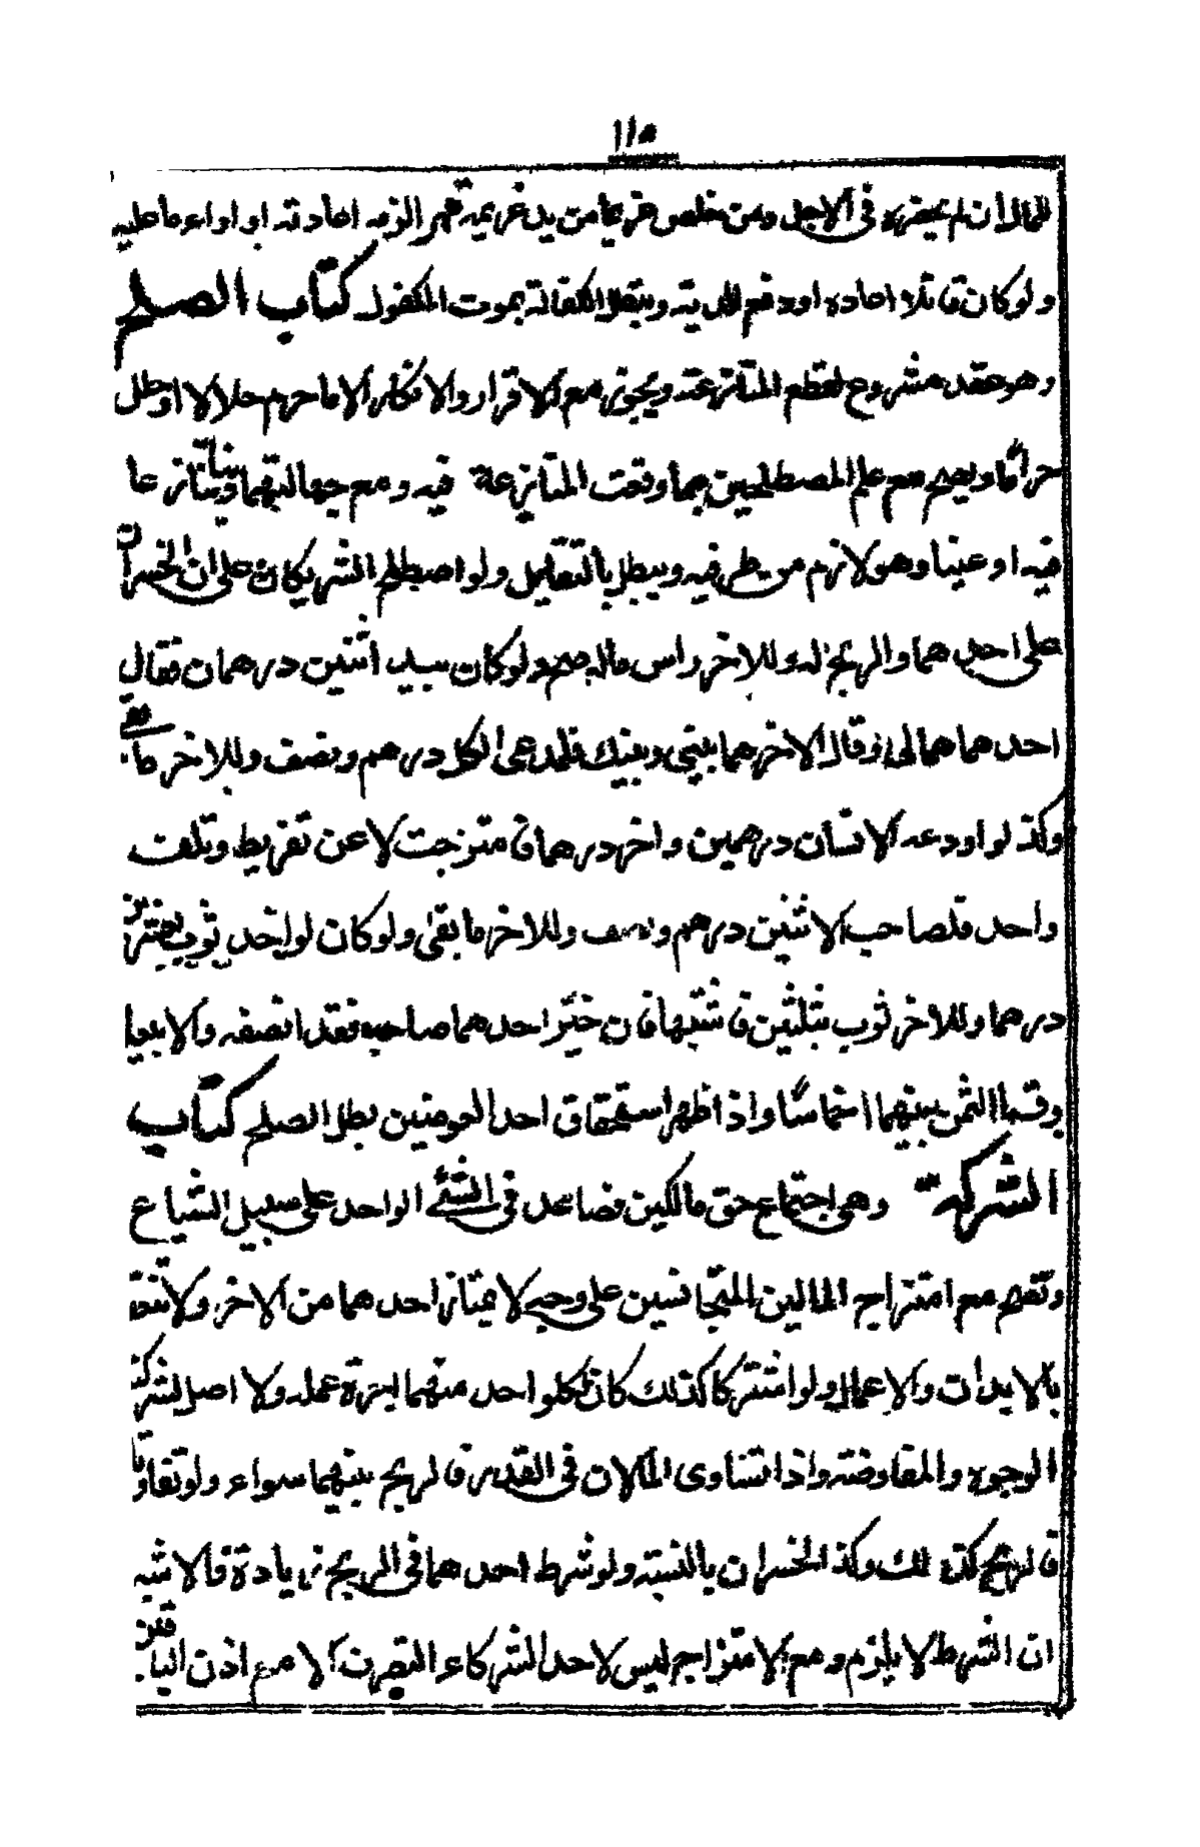 ١١٥
المال ان لم يحضره فى الاجل ومن خلص غريما من يد غريمه قهرا لزمه اعادته او اداء ما عليه
ولو كان قاتلا اعاده او دفع الدية وتبطل الكفالة بموت المكفول كتاب الصلح
وهو عقد مشروع لقطع المنازعة ويجوز مع الاقرار والانكار الا ما حرم حلالا او حلل
حراما ويصح مع علم المصطلحين بما وقعت المنازعة فيه ومع جهالتهما دينا تنازعا
فيه او عينا وهو لازم من طرفيه ويبطل بالتقايل ولو اصطلح الشريكان على ان الخسران
على احدهما والربح له وللاخر راس ماله صح ولو كان بيد اثنين درهمان فقال
احدهما هما لى وقال الاخر هما بينى وبينك فلمدعى الكل درهم ونصف وللاخر ما بقى
وكذا لو اودعه الانسان درهمين واخر درهما فامتزجت لا عن تفريط وتلفت
واحد فلصاحب الاثنين درهم ونصف وللاخر ما بقى ولو كان لواحد ثوب بعشرين
درهما وللاخر ثوب بثلثين فاشتبها فان خير احدهما صاحبه فقد انصفه والا بيعا
وقسم الثمن بينهما اخماسا واذا ظهر استحقاق احد العوضين بطل الصلح كتاب
الشركة وهى اجتماع حق مالكين فصاعدا فى الشئ الواحد على سبيل الشياع
وتصح مع امتزاج المالين المتجانسين على وجه لا يمتاز احدهما من الاخر ولا تنعقد
بالابدان والاعمال ولو اشتركا كذلك كان لكل واحد منهما اجرة عمله ولا اصل لشركة
الوجوه والمفاوضة واذا تساوى المالان فى القدر فالربح بينهما سواء ولو تفاوتا
فالربح كذلك وكذا الخسران بالنسبة ولو شرط احدهما فى الربح زيادة فالاشبه
ان الشرط لا يلزم ومع الامتزاج ليس لاحد الشركاء التصرف الا مع اذن الباقين